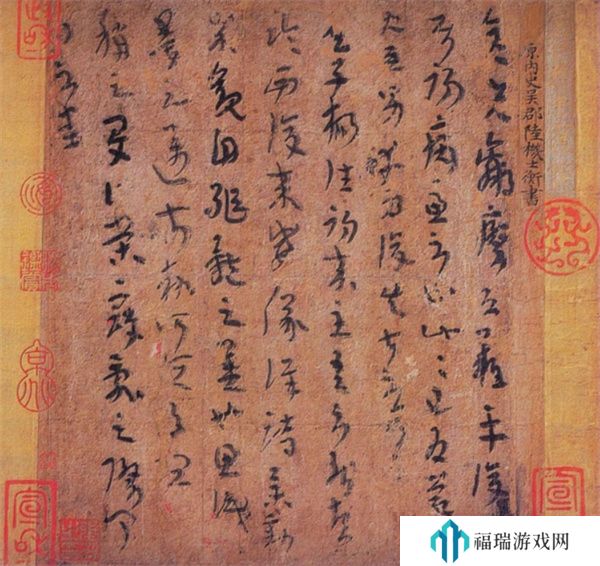 原内史吳郡陸機士衡書
彦先羸瘵恐難平復
往屬初病慮不止此此已為慶承
使唯男幸為復失前憂耳
吳子楊往初來主吾不能盡
臨西復來威儀詳跱舉動
成觀自軀體之美也思識
量之邁前執所恒有宜
稱之夏伯榮寇亂之際聞
問不悉
宣和
福瑞游戏网